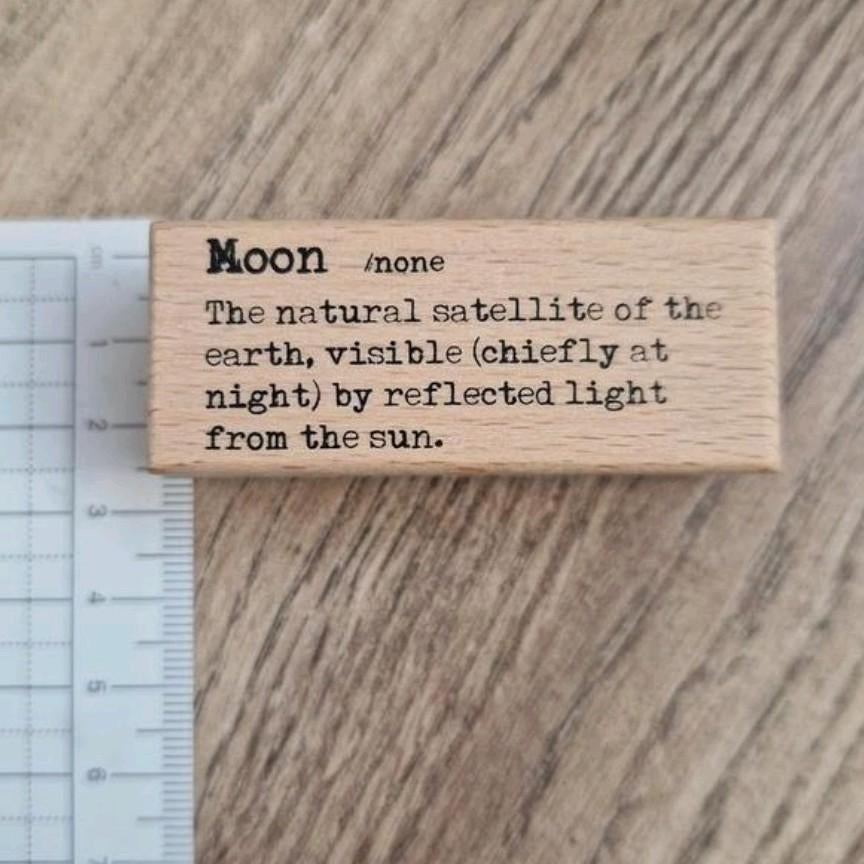 Moon /none
The natural satellite of the
earth, visible (chiefly at
night) by reflected light
from the sun.
cm
1
2
3
4
5
6
7